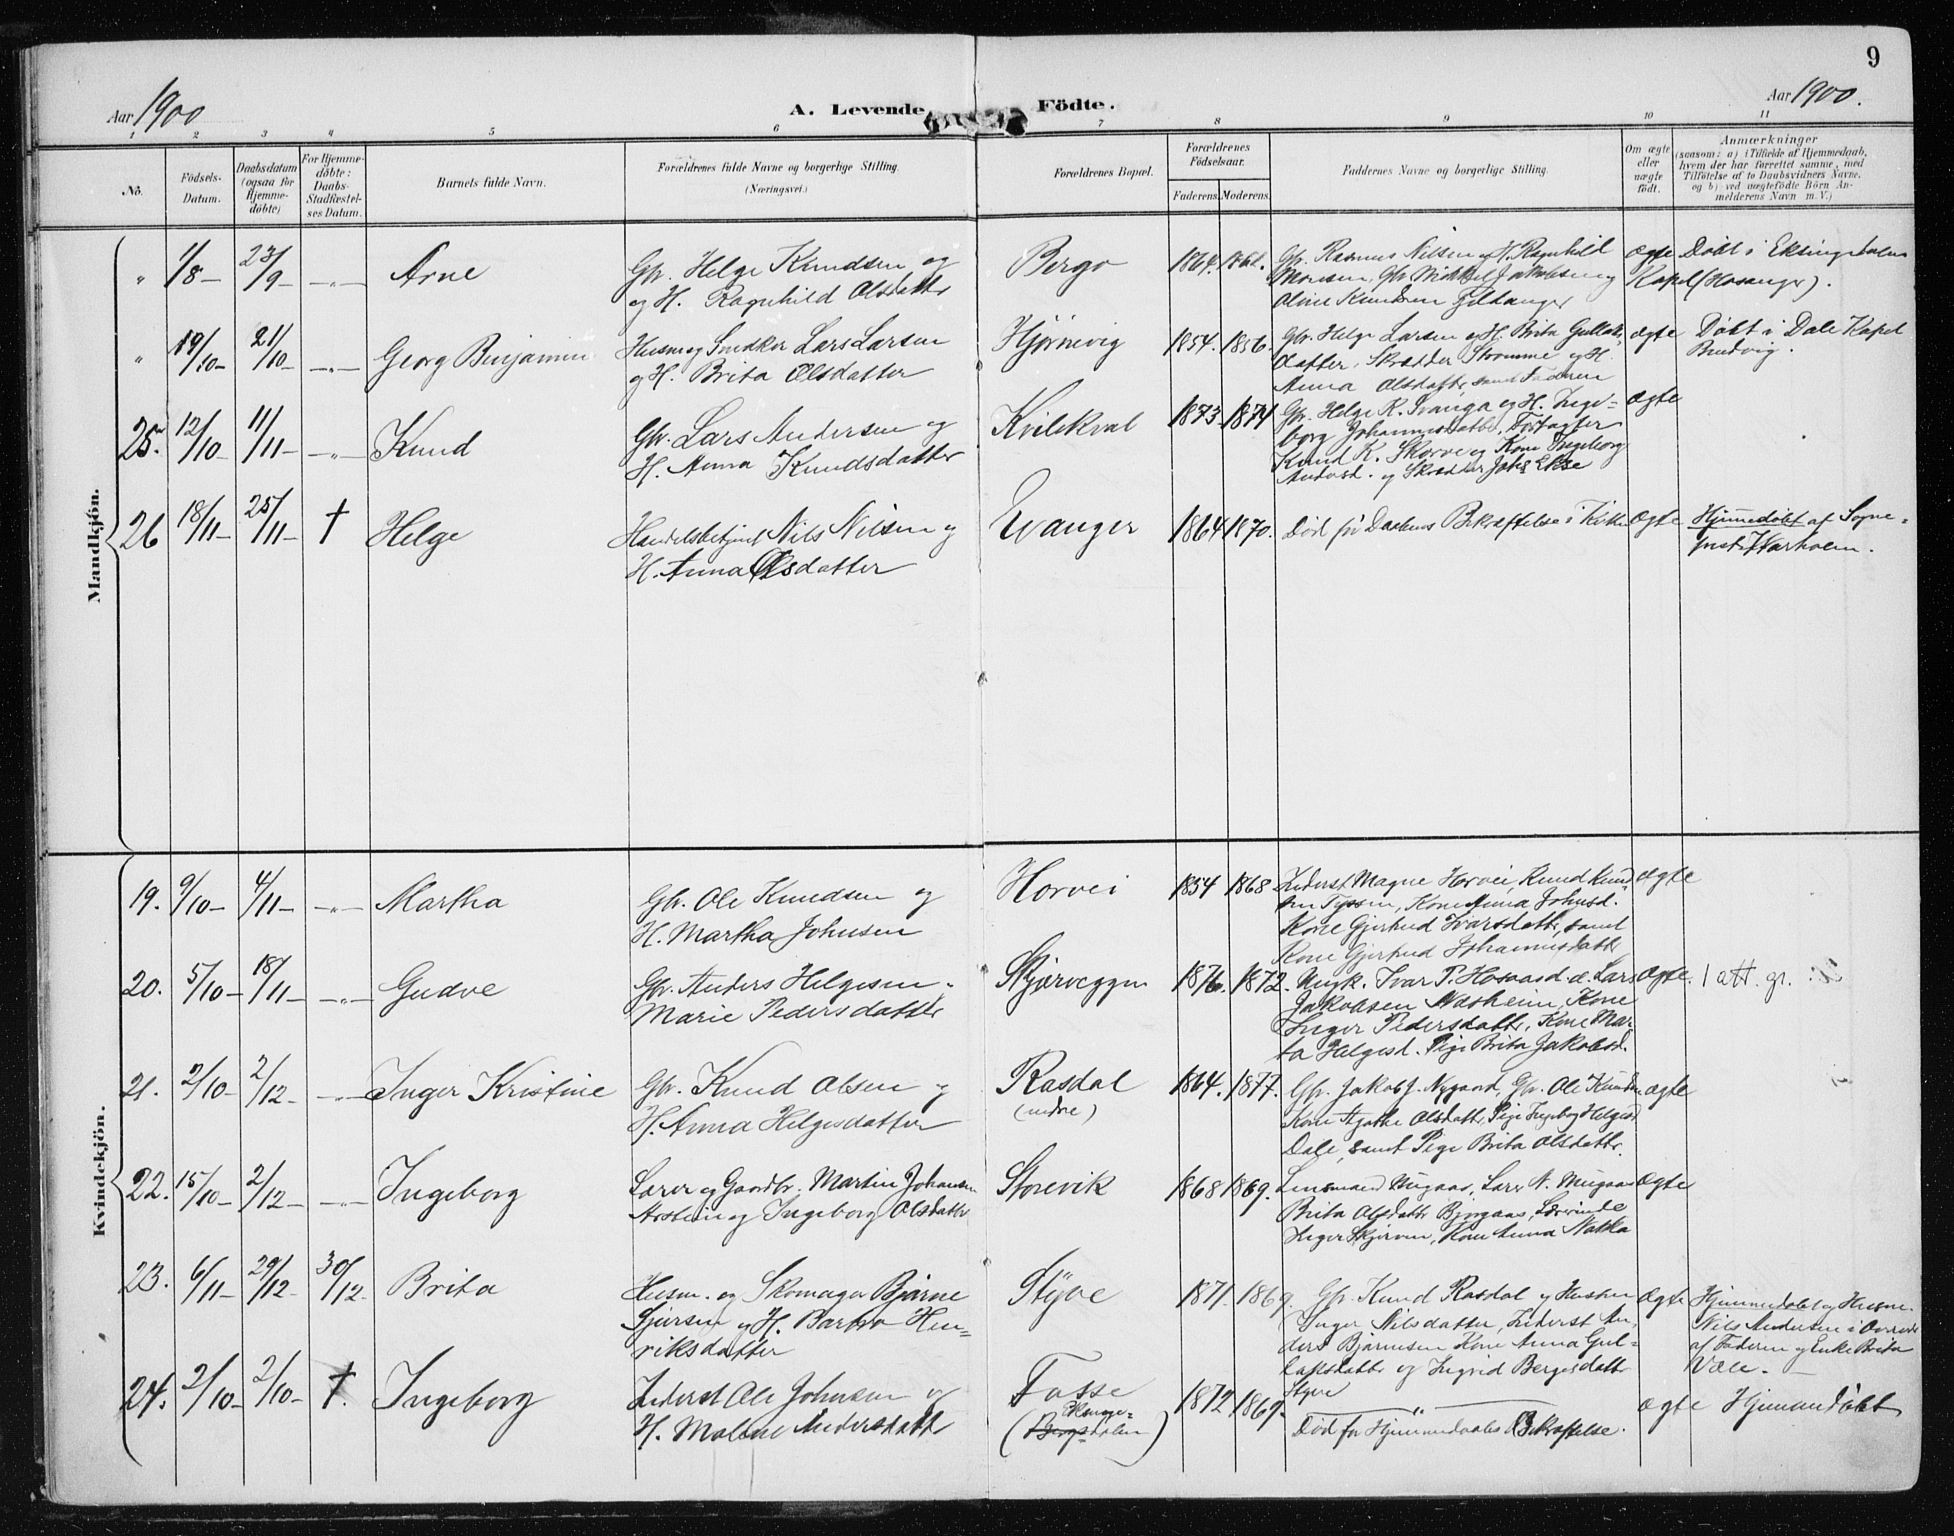 9
Aar 1900
A. Levende Födte.
Aar 1900.
1 2 3 4 5 6 7 8 9 10 11
No.
Födsels-Datum.
Daabsdatum (ogsaa for Hjemme-döbte)
For Hjemme-döbte: Daabs-Stadfæstel-ses Datum.
Barnets fulde Navn.
Forældrenes fulde Navne og borgerlige Stilling. (Næringsvei.)
Forældrenes Bopæl.
Forældrenes Födselsaar.
Faderens. Moderens.
Faddernes Navne og borgerlige Stilling.
Om ægte eller uægte födt.
Anmærkninger
(saasom: a) i Tilfælde af Hjemmedaab,
hvem der har forrettet samme, med
Tilföielse af to Daabsvidners Navne.
og b) ved uægtefödte Börn An-
melderens Navn m. V.)
Mandkjön.
" 1/8 23/9 Arne
Gbr. Helge Knudsen og
og H. Ragnhild Olsdatter
Bergo 1864. 1862.
Gbr. Rasmus Nilsen og H. Ragnhild
Monsen, Gbr. Mikkel Jakobsen og
Oline Knudsen Fjeldanger
ægte
Døbt i Eksingedalens
Kapel (Hosanger).
" 19/10 21/10 Georg Benjamin
Husm og Snedker Lars Larsen
og H. Brita Olsdatter
Hjørnevig 1854. 1856.
Gbr. Helge Larsen og H. Brita Gullaks
datter, Skrædder Strømme og H.
Anna Olsdatter, samt Faderen
ægte
Døbt i Dale Kapel
Bruvig.
25. 12/10 11/11 Knud
Gbr. Lars Andersen og
H. Anna Knudsdatter
Kvilekval 1873. 1874
Gbr. Helge K. Svanga og H. Inge-
borg Johannesdatter, Forpagter
Knud K. Skorve og Kone Ingeborg
Andersd. og Skrædder Johs Ekse
ægte
26 18/11 25/11 † Helge
Handelsbetjent Nils Nilsen og
H. Anna Olsdatter
Evanger 1864 1870.
Død før Daabens Bekræftelse i Kirken
ægte
Hjemmedøbt af Sogne-
prest Warholm.
Kvindekjön.
19. 9/10 4/11 Martha
Gbr. Ole Knudsen og
H. Martha Johnsen
Horvei 1854 1868
Lederst Magne Horvei, Knud Knud
sen Tyssen, Kone Anna Johnsd.
Kone Gjertrud Ivarsdatter, samt
Kone Gjertrud Johannesdatter
ægte
20. 5/10 18/11 Gudve
Gbr. Anders Helgesen.
Marie Pedersdatter
Skjerveggen 1876. 1872.
Ungk. Ivar P. Hosaard. d. Lars
Jakobsen Næsheim, Kone
Inger Pedersdatter, Kone Mar-
ta Helgesd. Pige Brita Jakobsd.
ægte.
1 att. gr.
21. 2/10 2/12 Inger Kristine
Gbr. Knud Olsen og
H. Anna Helgesdatter
Rasdal
(nedre)
1864. 1877.
Gbr. Jakob J. Nygaard, Gbr. Ole Knudsen
Kone Agathe Olsdatter, Pige Ingeborg Helgesd
Dale, samt Pige Brita Olsdatter.
ægte
22. 15/10 2/12 Ingeborg
Lærer og Gaardbr. Martin Johansen
og Ingeborg Olsdatter
Storevik 1868 1869.
Lensmand Mugaas, Lærer N. Mugaas
Brita Olsdatter Bjørgaas, Lærerinde
Inger Skjerven, Kone Anna Nakka
ægte
23. 6/11 29/12 30/12 Brita
Husm. og Skomager Bjarne
Sjursen og H. Barbro Hen-
riksdatter
Styve 1871. 1869.
Gbr. Knud Rasdal og Hustru
Inger Nilsdatter, Lederst An-
ders Bjarnesen Kone Anna Gul-
laksdatter og Ingrid Bergesdatter
Styve
ægte
Hjemmedøbt og Husm.
Nils Andersen i
af Faderen og Enke Brita
Væle.
24. 2/10 2/10 †. Ingeborg
Lederst Ole Johnsen og
H. Malene Andersdatter
Fosse
(Eksinge-
Bergsdalen)
1872 1869.
Død før Hjemmedaabes Bekræftelse.
ægte
Hjemmedøbt